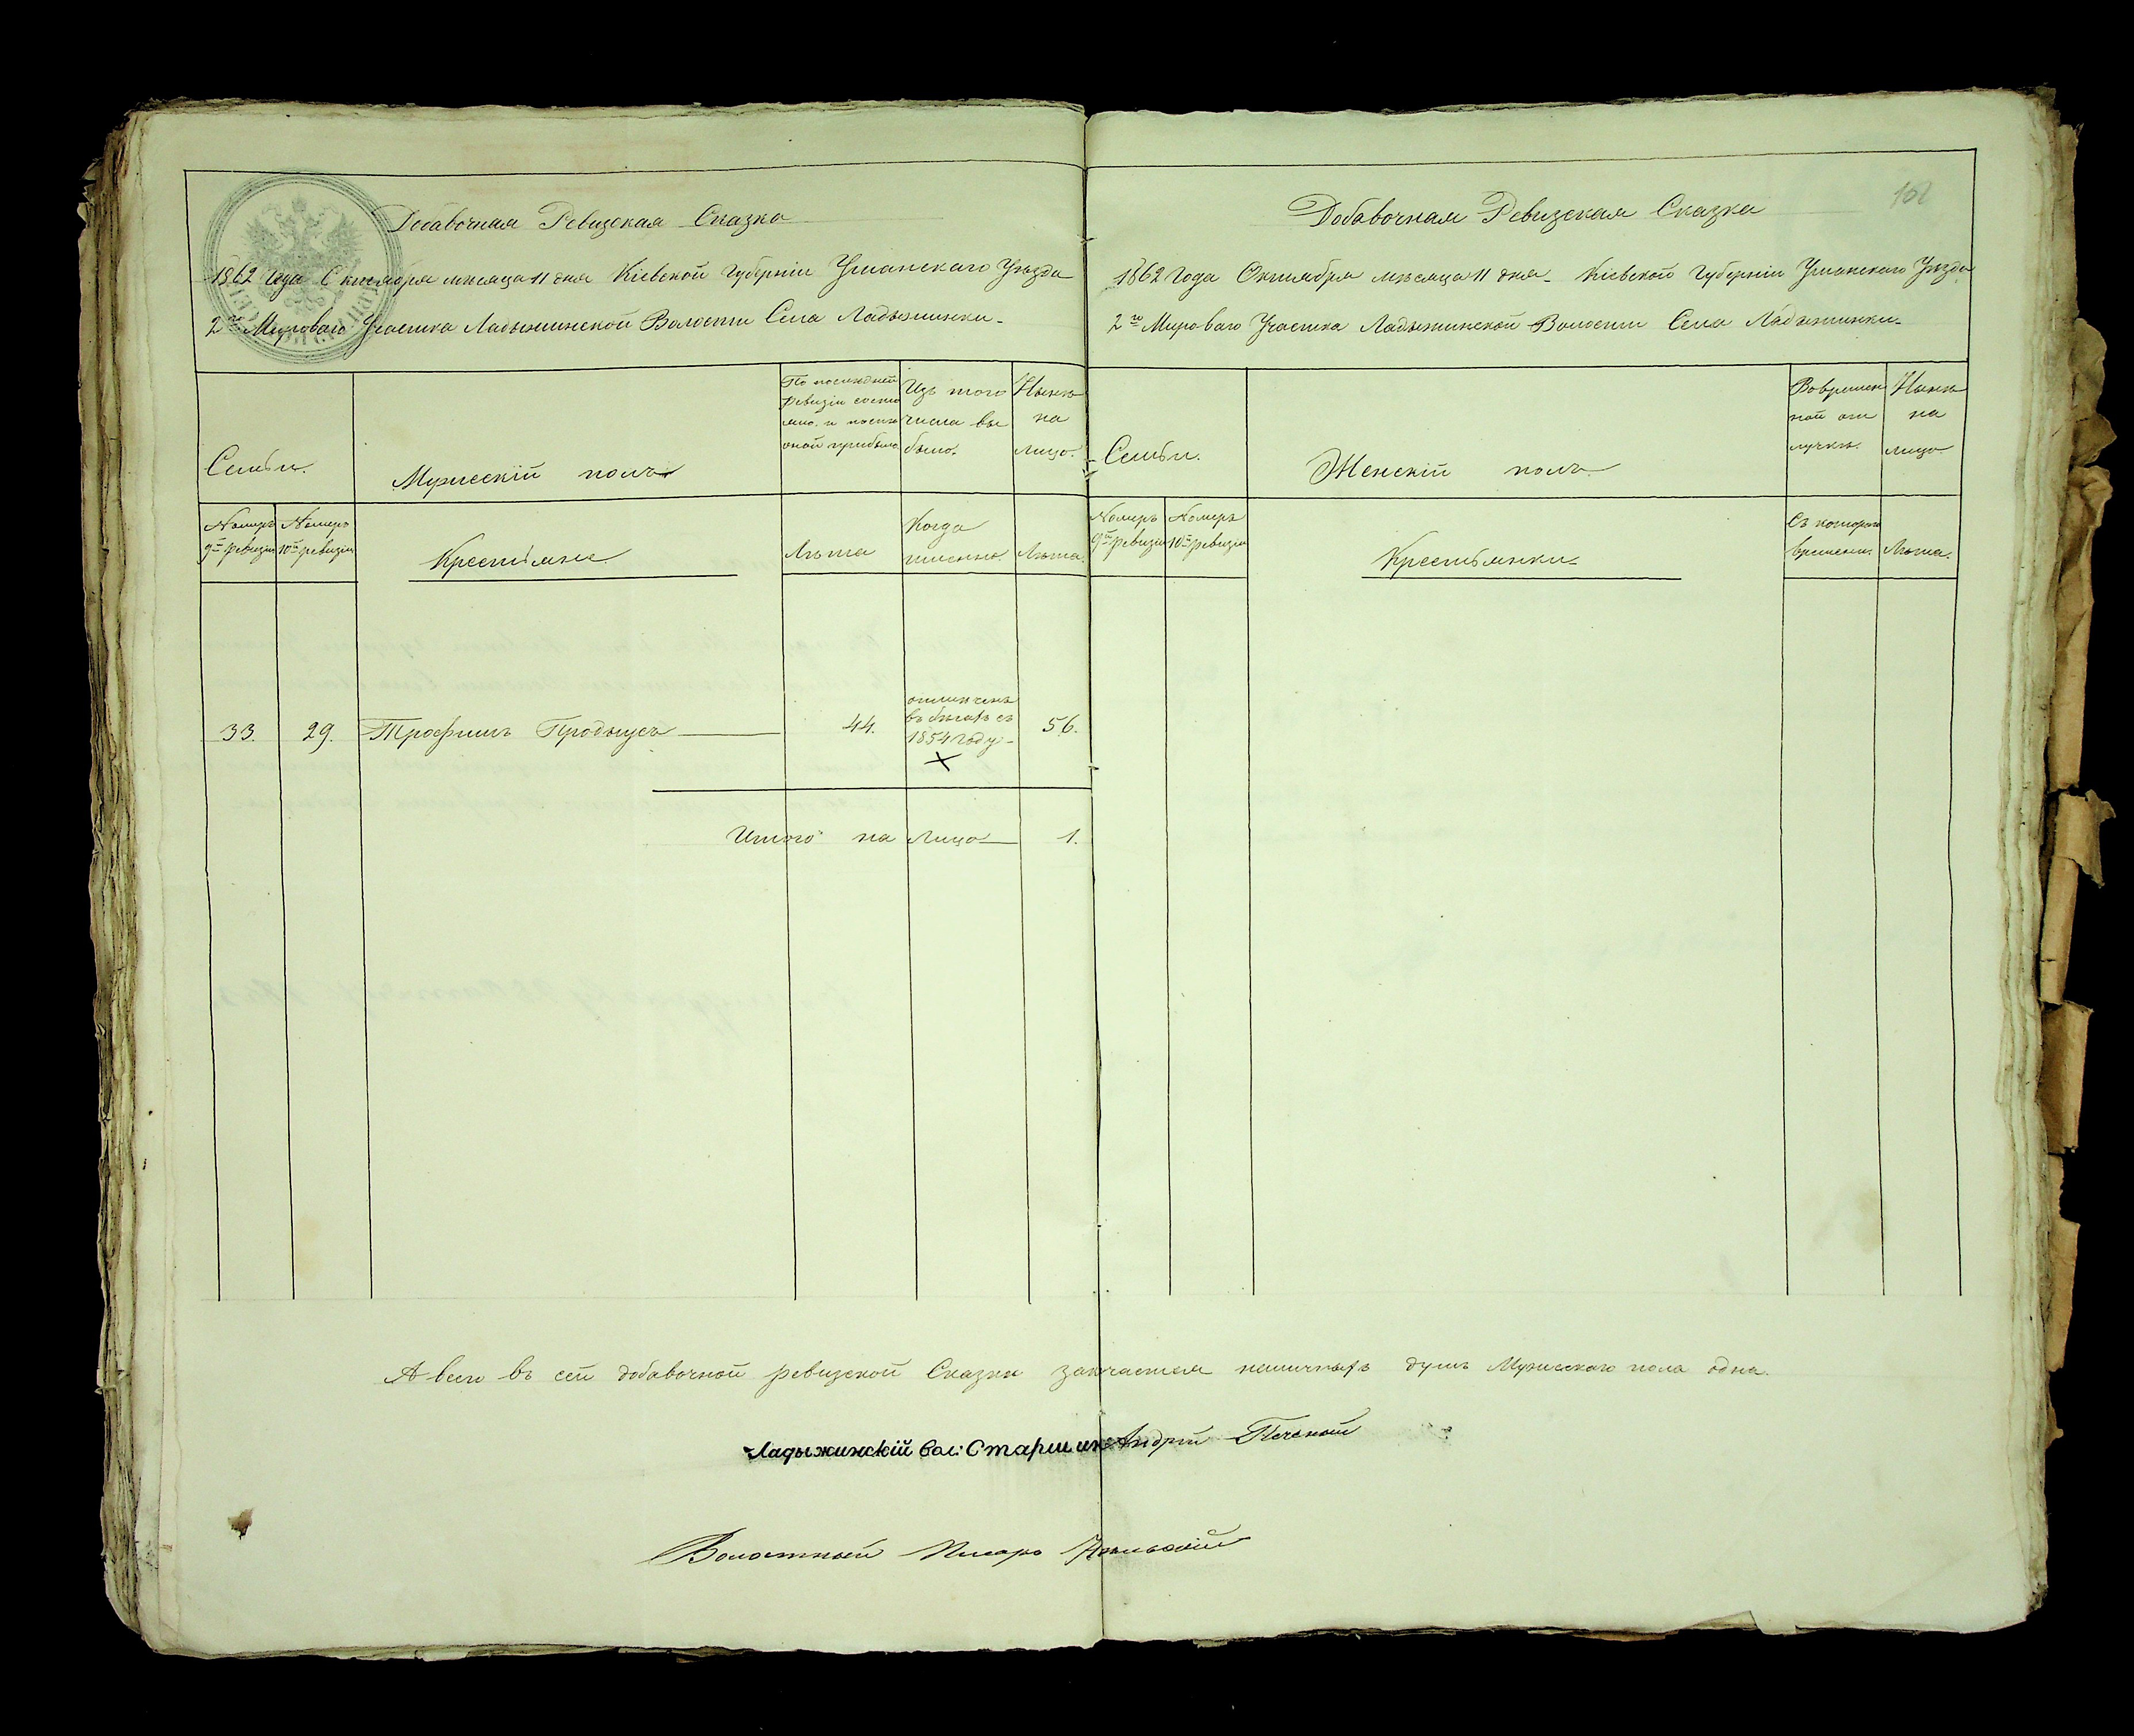 161
Добавочная Ревизская Сказка
1862 года Октября мѣсяца 11 дня Кіевской Губерніи Уманскаго Уѣзда
2го Мироваго Участка Ладыжинской Волости Села Ладыжинки
Семьи.
Мужескій полъ
По послѣдней
ревизіи состо
яло и послѣ
оной прибыло
Изъ того
числа вы
было.
Нынѣ
на
лицо.
Номеръ
9й ревизіи
Номеръ
10й ревизіи
Крестьяне
Лѣта
Когда
именно
Лѣта.
33.
29.
Трофимъ Продыусъ
44.
отмѣченъ
въ бѣгахъ съ
1854 году
56.
Итого на Лицо
1.
Добавочная Ревизская Сказка
1862 Года Октября мѣсяца 11 дня Кіевской Губерніи Уманскаго Уѣзда
2го Мироваго Участка Ладыжинской Волости Села Ладыжинки
Семьи.
Женскій полъ
Во времен
ной от
лучкѣ.
Нынѣ
на
лицо
Номеръ
9й ревизіи
Номеръ
10й ревизіи
Крестьянки
Съ котораго
времени.
Лѣта.
А всего въ сей добавочной ревизской Сказкѣ наличныхъ душъ Мужескаго пола одна.
Ладыжинскій вол: Старшина Андрій
Волостный Писарь